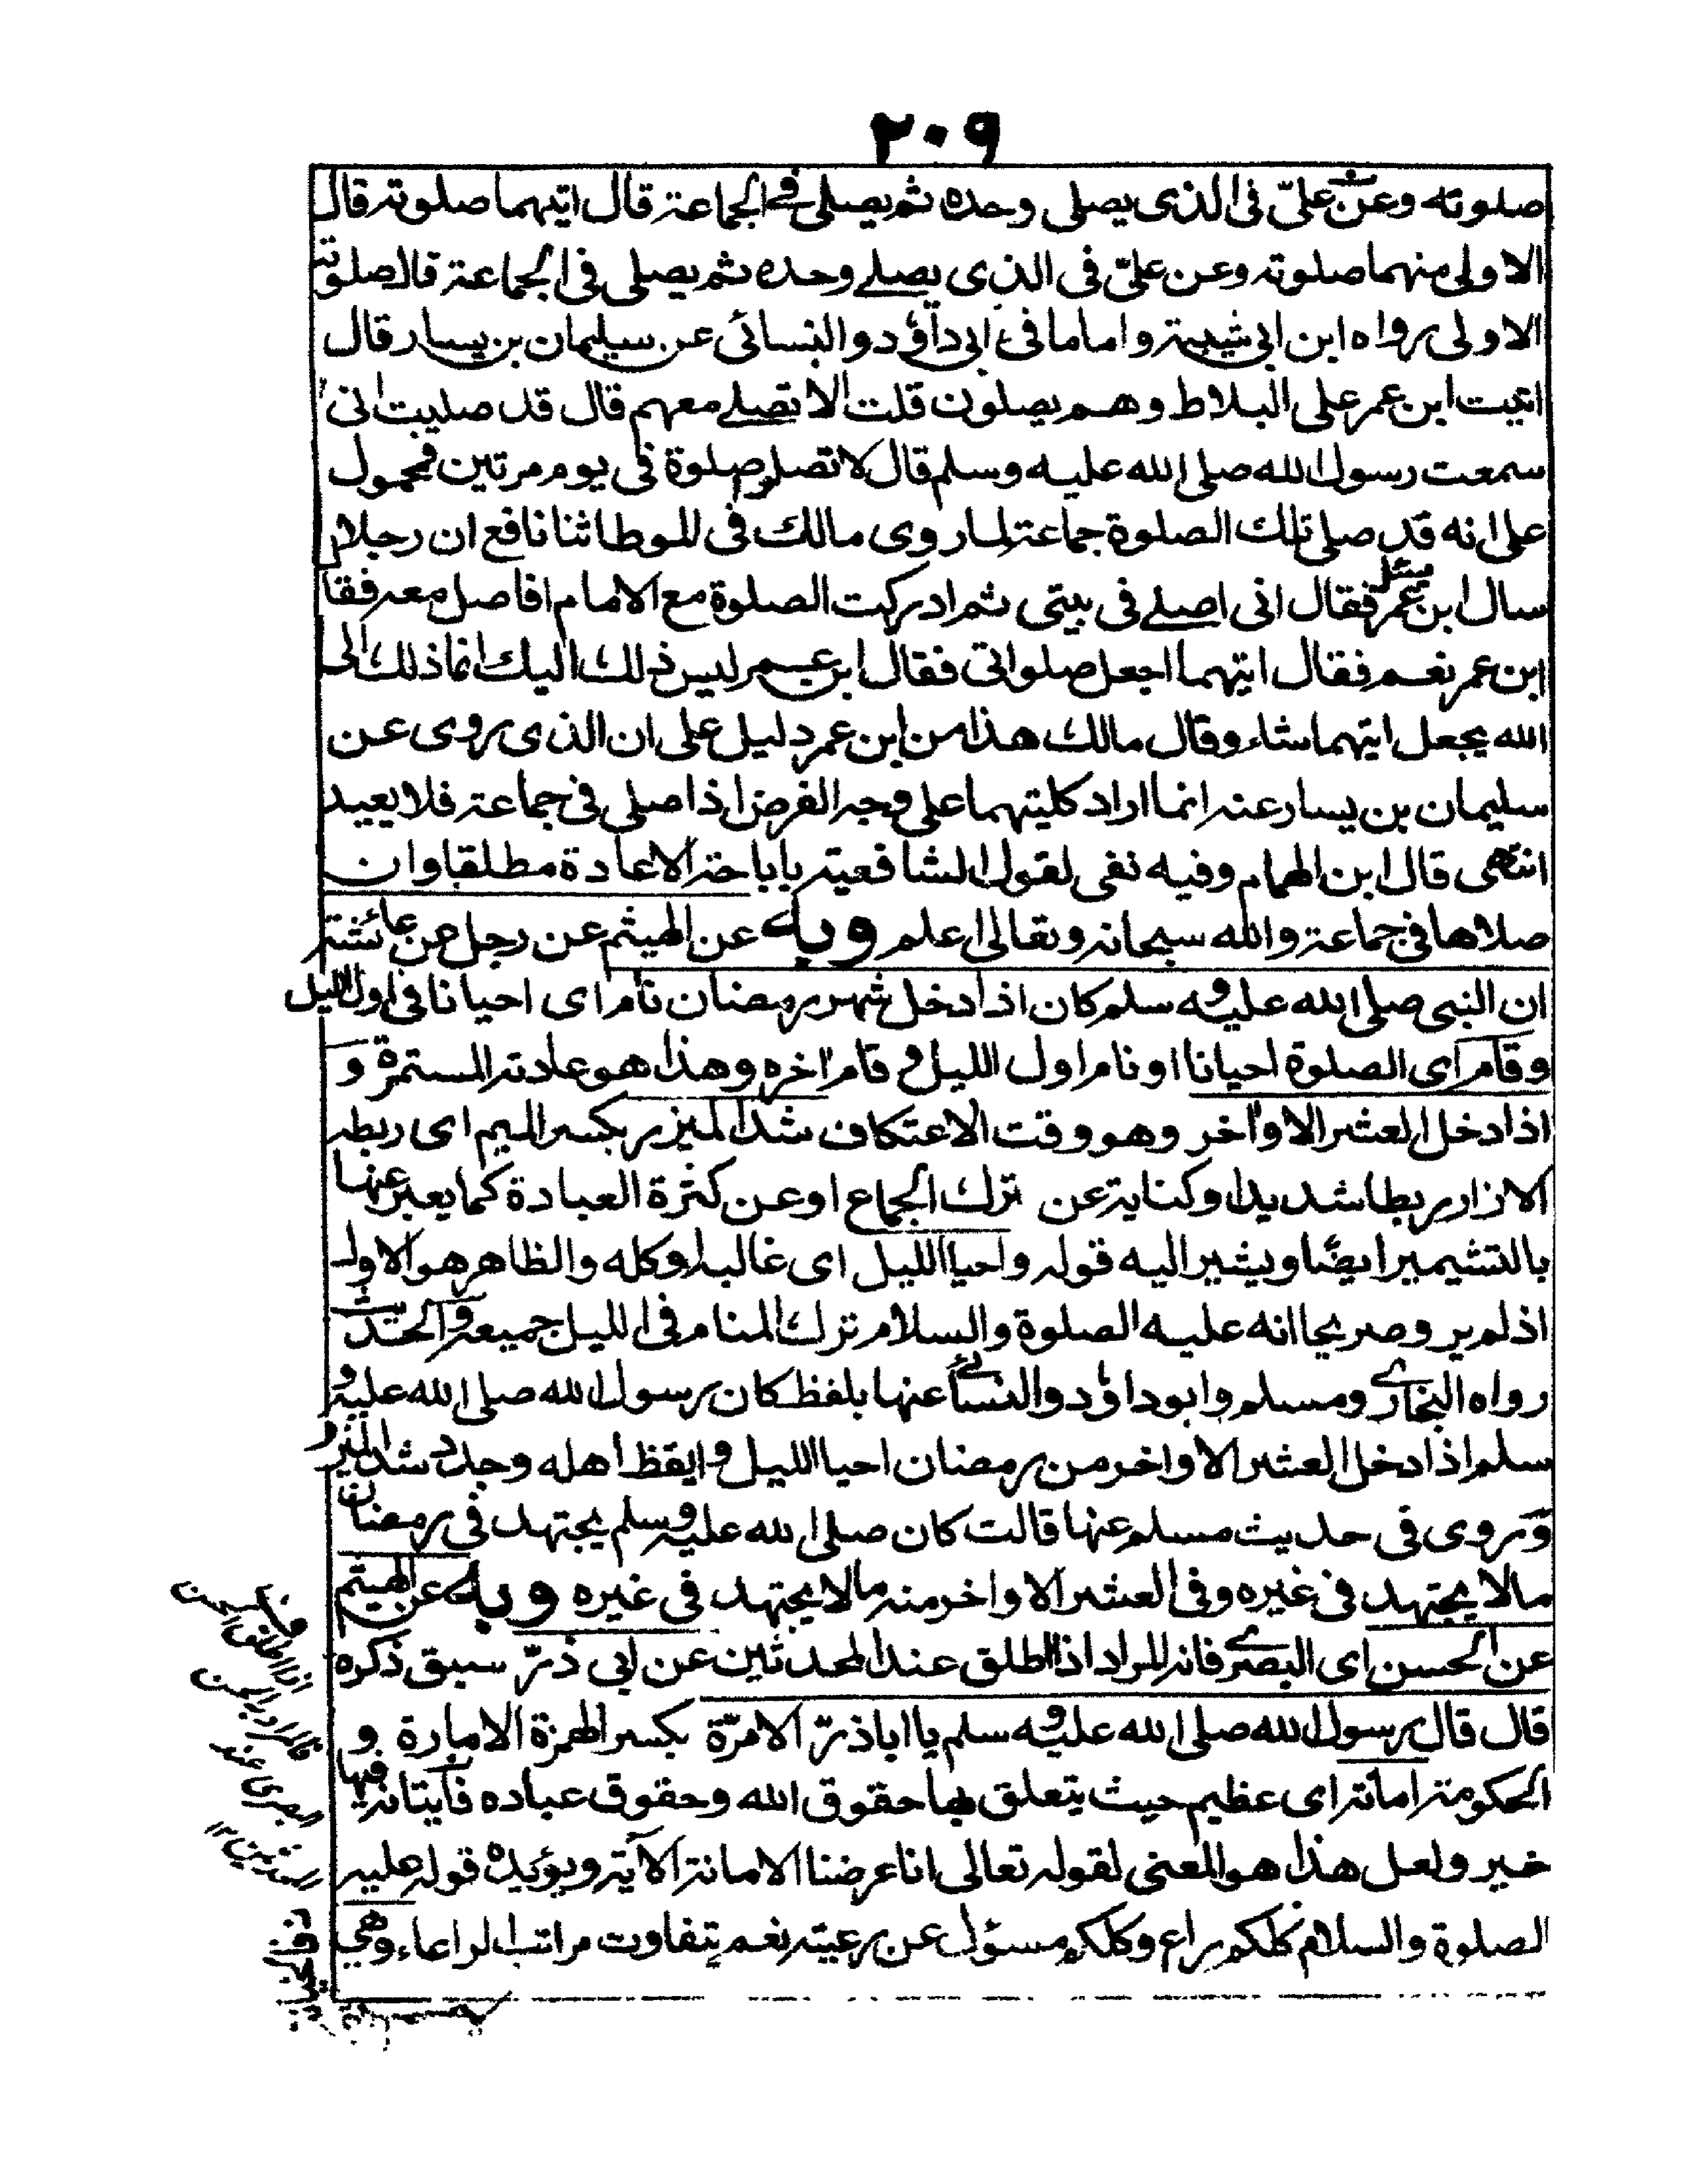 ٢٠٩
صلوته وعن علىّ فى الذى يصلى وحده ثم يصلى فى الجماعة قال ايتهما صلوته قال
الاولى منهما صلوته وعن علىّ فى الذى يصلے وحده ثم يصلى فى الجماعة قال صلوته
الاولى رواه ابن ابى شيبة واما ما فى ابى داؤد والنسائى عن سليمان بن يسار قال
اتيت ابن عمر على البلاط وهم يصلون قلت الا تصلے معهم قال قد صليت انى
سمعت رسول الله صلى الله عليه وسلم قال لا تصلوا صلوة فى يوم مرتين فمحمول
على انه قد صلى تلك الصلوة جماعة لما روى مالك فى الموطا ثنا نافع ان رجلا
سال ابن عمر فقال انى اصلے فى بيتى ثم ادركت الصلوة مع الامام افاصل معه فقا
ابن عمر نعم فقال ايتهما اجعل صلواتى فقال ابن عمر ليس ذلك اليك انما ذلك الى
الله يجعل ايتهما شاء وقال مالك هذا من ابن عمر دليل على ان الذى روى عن
سليمان بن يسار عنه انما اراد كليتهما على وجه الفرض اذا صلى فى جماعة فلا يعيد
انتهى قال ابن الهمام وفيه نفى لقول الشافعية باباحة الاعادة مطلقا وان
صلاها فى جماعة والله سبحانه وتعالى اعلم وبه عن الهيثم عن رجل عن عائشة
ان النبى صلى الله عليه وسلم كان اذا دخل شهر رمضان نام اى احيانا فى اول الليل
وقام اى الصلوة احيانا او نام اول الليل و قام اخره وهذا هو عادته المستمرة و
اذا دخل العشر الاواخر وهو وقت الاعتكاف شد الميزر بكسر الميم اى ربطه
الازار ربطا شديدا وكناية عن ترك الجماع او عن كثرة العبادة كما يعبر عنها
بالتشمير ايضا ويشير اليه قوله واحيا الليل اى غالبه او كله والظاهر هو الاول
اذ لم يرو صريحا انه عليه الصلوة والسلام ترك المنام فى الليل جميعه والحديث
رواه البخارے ومسلم وابو داؤد والنسائے عنها بلفظ كان رسول الله صلى الله عليه و
سلم اذا دخل العشر الاواخر من رمضان احيا الليل و ايقظ اهله وجد وشد الميزر و
وروى فى حديث مسلم عنها قالت كان صلى الله عليه وسلم يجتهد فى رمضان
مالا يجتهد فى غيره وفى العشر الاواخر منه مالا يجتهد فى غيره وبه عن الهيثم
عن الحسن اى البصرے فانه المراد اذا اطلق عند المحدثين عن ابى ذرّ سبق ذكره
قال قال رسول الله صلى الله عليه وسلم يا ابا ذرّ الامرّة بكسر الهمزة الامارة و
الحكومة امانة اى عظيم حيث يتعلق بها حقوق الله وحقوق عباده فايتانه فيها
خير ولعل هذا هو المعنى لقوله تعالى انا عرضنا الامانة الآية ويؤيده قوله عليه
الصلوة والسلام كلكم راع وكلكم مسؤل عن رعيته نعم يتفاوت مراتب الرعاء وهى